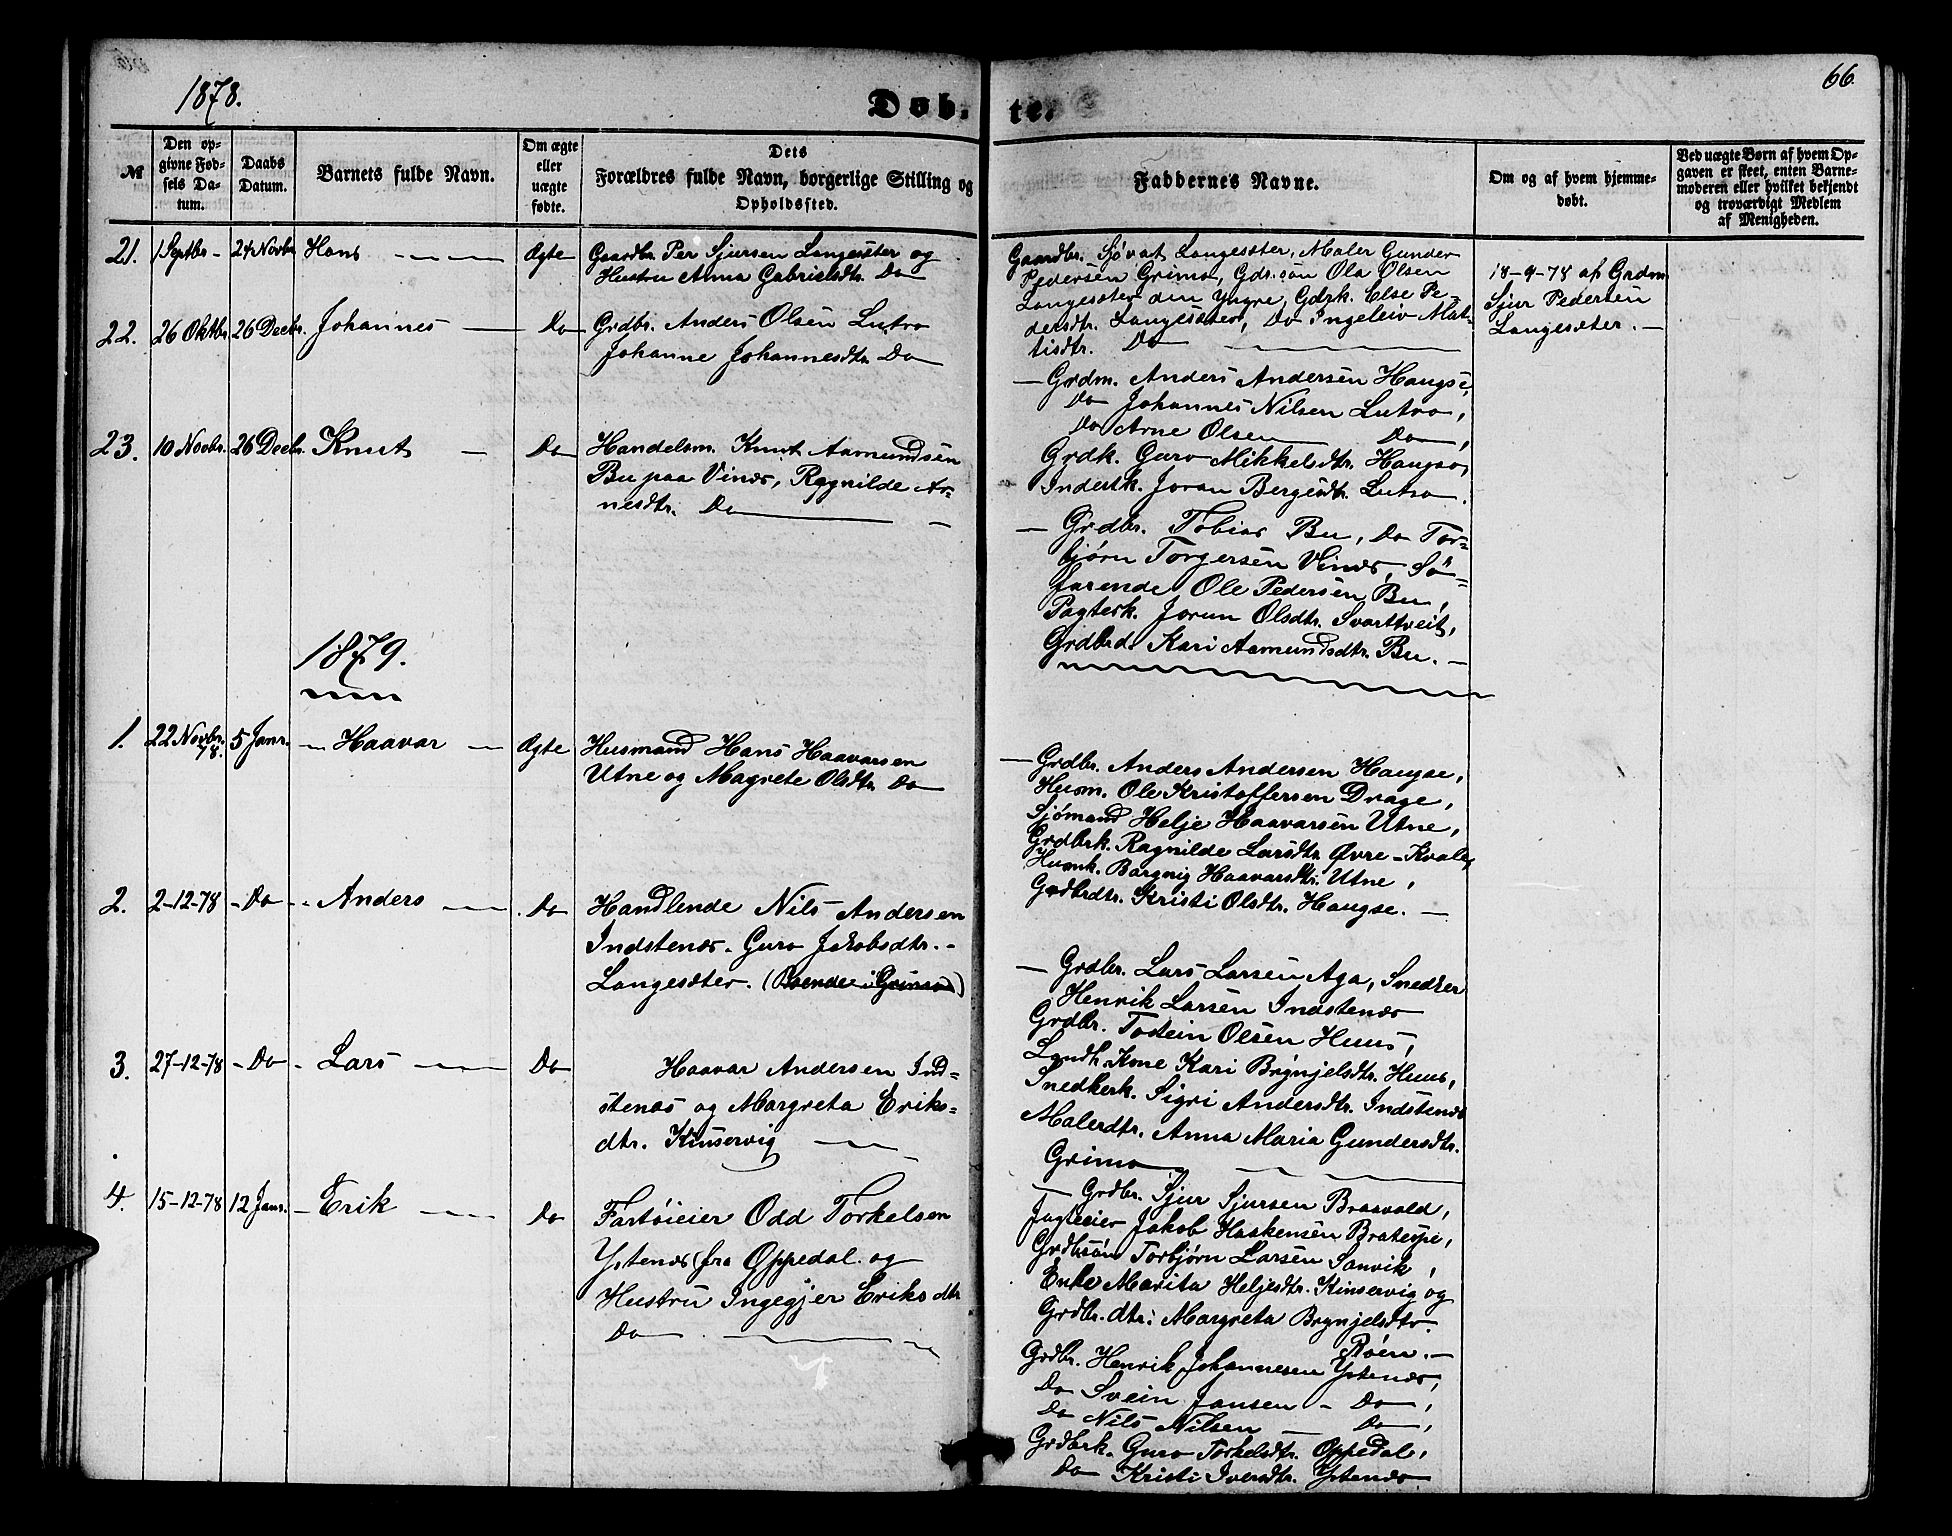 1878.
Døb-
te.
66.
№
Den op-
givne Fød-
sels Da-
tum.
Daabs
Datum.
Barnets fulde Navn.
Om ægte
eller
uægte
fødte.
Dets
Forældres fulde Navn, borgerlige Stilling og
Opholdssted.
Faddernes Navne.
Om og af hvem hjemme-
døbt.
Ved uægte Børn af hvem Op-
gaven er skeet, enten Barne-
moderen eller hvilket bekjendt
og troværdigt Medlem
af Menigheden.
21. 1 Septbr - 24 Novbr Hans Ægte
Gaardbr. Per Sjursen Langesæter og
Hustru Anna Gabrielsdtr. Do
Gaardbr. Sjøvat Langesæter, Maler Gunder
Pedersen Grimo, Gdr.søn Ola Olsen
Langesæter den Yngre, Gdrk. Else Pe-
dersdtr. Langesæter, Do Ingeleiv Mat-
tisdtr. Do
18-9-78 af Grdm.
Sjur Pedersen
Langesæter. -
22. 26 Oktbr. 26 Decbr. Johannes Do
Grdbr. Anders Olsen Lutro
Johanne Johannesdtr. Do
- Grdm. Anders Andersen Haugse,
Do Johannes Nilsen Lutro,
Do Arne Olsen Do,
Grdk. Guro Mikkelsdtr. Haugse,
Inderstk. Joran Bergesdtr. Lutro.
23. 10 Novbr. 26 Decbr. Knut - Do
Handelsm. Knut Aamundsen
Bu paa Vinæs, Ragnilde Ar-
nesdtr. Do -
- Grdbr. Tobias Bu, Do Tor-
bjørn Torgersen Vinæs, Sø-
farende Ole Pedersen Bu,
Pagterk. Jorun Olsdtr. Svarttveit,
Grdbrd. Kari Aamundsdtr. Bu. -
1879.
1. 22 Novbr. 78. 5 Janr. - Haavar - Ægte
Husmand Hans Haavarsen
Utne og Magrete Olsdtr. Do
- Grdbr. Anders Andersen Haugse,
Husm. Ole Kristoffersen Drage,
Sjømand Helje Haavarsen Utne,
Grdbrk. Ragnilde Larsdtr. Øvre-Kvale,
Husmk. Borgnig Haavarsdtr. Utne,
Grdbrdtr. Kristi Olsdtr. Haugse. -
2. 2-12-78 - Do - Anders Do
Handlende Nils Andersen
Indstenæs. Guro Jakobsdtr. -
Langesæter. (Boende i Grimo)
- Grdbr. Lars Larsen Aga, Snedker
Henrik Larsen Indstenæs
Grdbr. Tostein Olsen Huus,
Landh. Kone Kari Brynjelsdtr. Huus,
Snedkerk. Sigri Andersdtr. Indstenæs
Malerdtr. Anna Maria Gundersdtr.
Grimo
3. 27-12-78 - Do - Lars Do
Haavar Andersen Ind-
stenæs og Margreta Eriks-
dtr. Kinservig
- Grdbr. Sjur Sjursen Braavold,
Jagteeier Jakob Haakensen Bratespe,
Grdbsøn Torbjørn Larsen Sanvik,
Enke Marita Heljesdtr. Kinservig og
Grdbr.dtr: Margreta Brynjelsdtr.
Røen. -
4. 15-12-78 12 Janr. - Erik Do
Fartøieier Odd Torkelsen
Ystenæs (fra Oppedal. og
Hustru Ingegjer Eriksdtr
Do
Grdbr. Henrik Johannesen Ystenæs,
Do Svein Jansen - Do,
Do Nils Nilsen - Do,
Grdbrk. Guro Torkelsdtr. Oppedal,
Do Kristi Iversdtr. Ystenæs